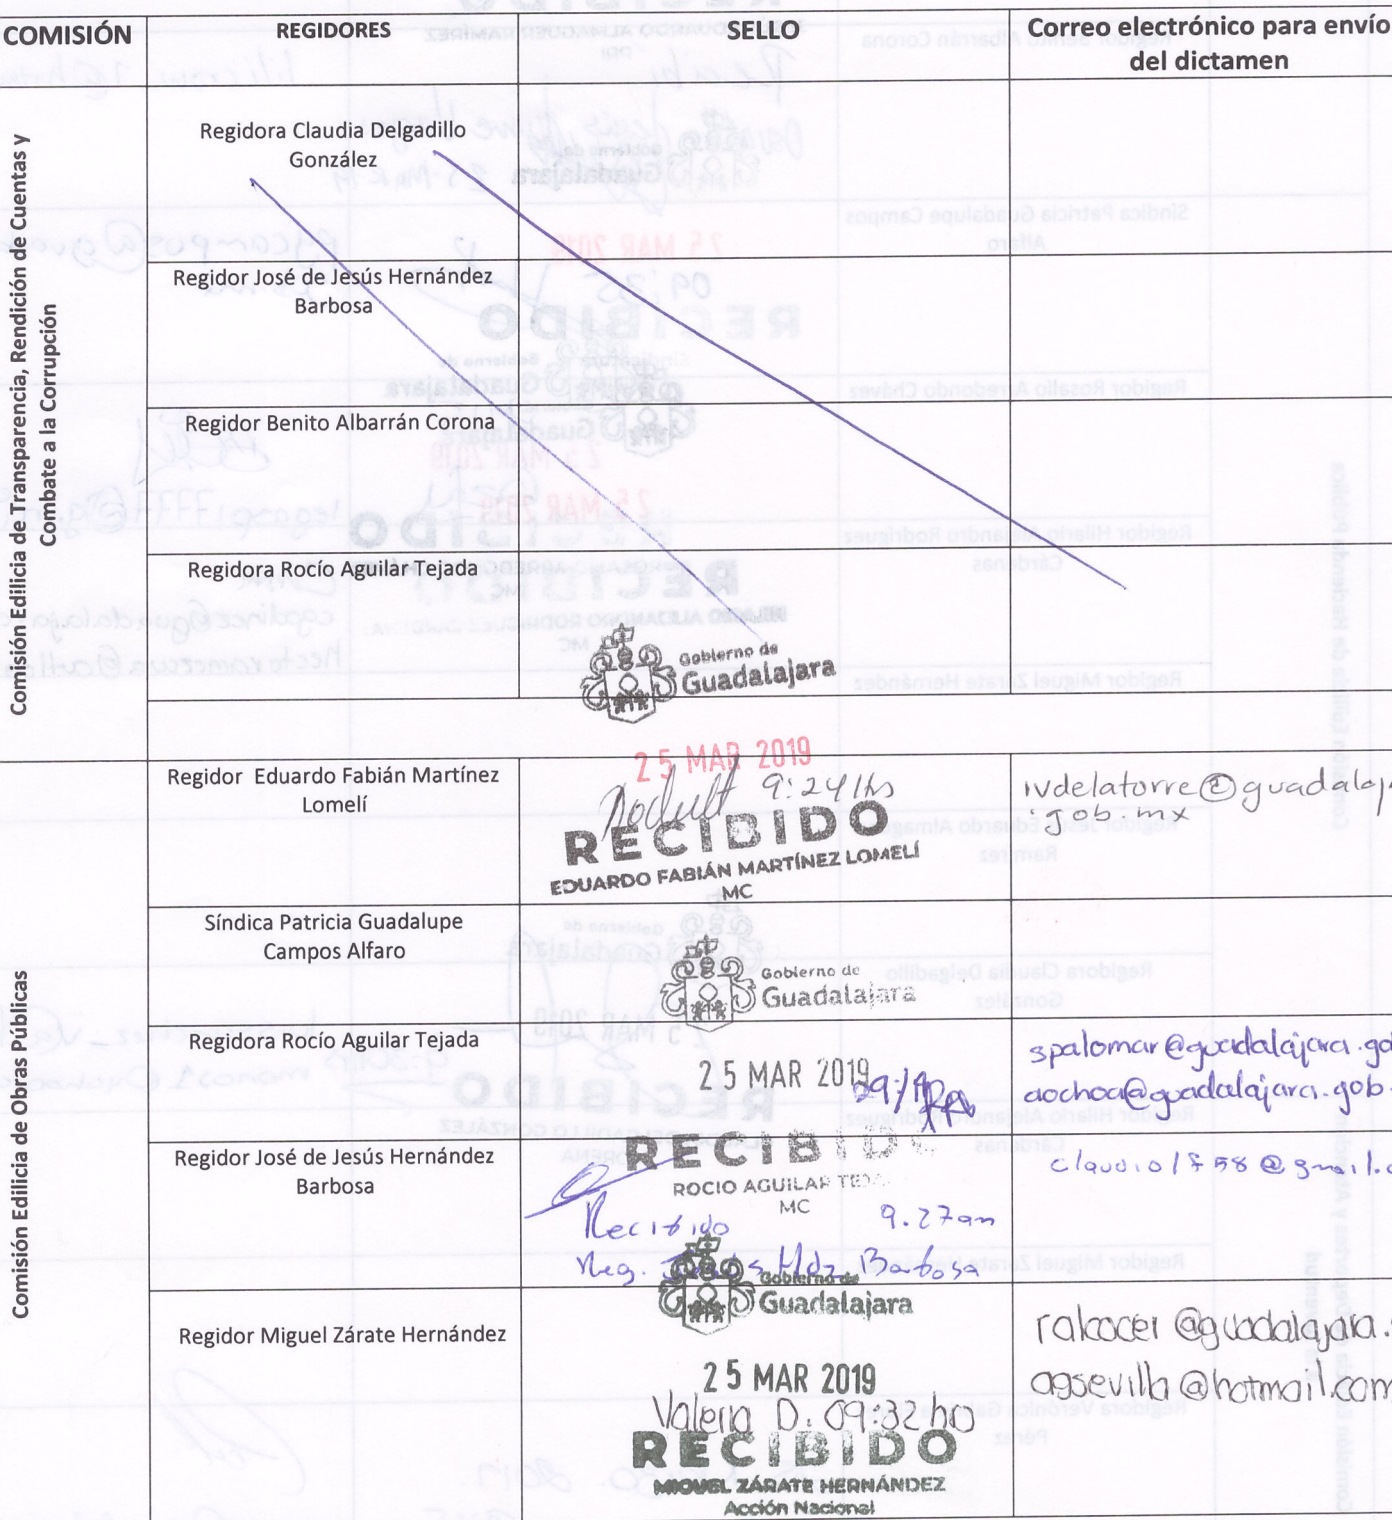 COMISIÓN
REGIDORES
SELLO
Correo electrónico para envío
del dictamen
Comisión Edilicia de Transparencia, Rendición de Cuentas y
Combate a la Corrupción
Regidora Claudia Delgadillo
González
Regidor José de Jesús Hernández
Barbosa
Regidor Benito Albarrán Corona
Regidora Rocío Aguilar Tejada
Gobierno de
Guadalajara
Comisión Edilicia de Obras Públicas
Regidor Eduardo Fabián Martínez
Lomelí
25 MAR 2019
9:24 hs
RECIBIDO
EDUARDO FABIÁN MARTÍNEZ LOMELÍ
MC
ivdelatorre@guadalaj
.gob.mx
Síndica Patricia Guadalupe
Campos Alfaro
Gobierno de
Guadalajara
Regidora Rocío Aguilar Tejada
25 MAR 2019
spalomar@guadalajara.go
aochoa@guadalajara.gob.
Regidor José de Jesús Hernández
Barbosa
RECIBIDO
ROCIO AGUILAR TEJA
MC
Recibido 9.27am
Reg. Jesús Hdz Barbosa
@gmail.c
Regidor Miguel Zárate Hernández
Gobierno de
Guadalajara
25 MAR 2019
Valeria D. 09:32 hrs
RECIBIDO
MIGUEL ZÁRATE HERNÁNDEZ
Acción Nacional
ralcocer@guadalajara.
agsevilla@hotmail.com